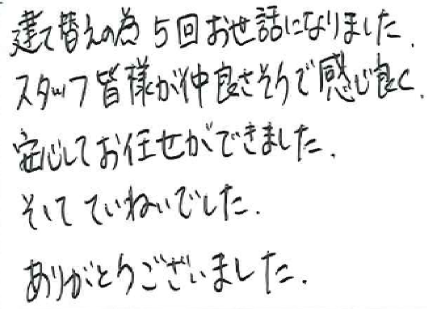 建て替えの為5回お世話になりました.
スタッフ皆様が仲良さそうで感じ良く.
安心してお任せができました.
そしてていねいでした.
ありがとうございました.